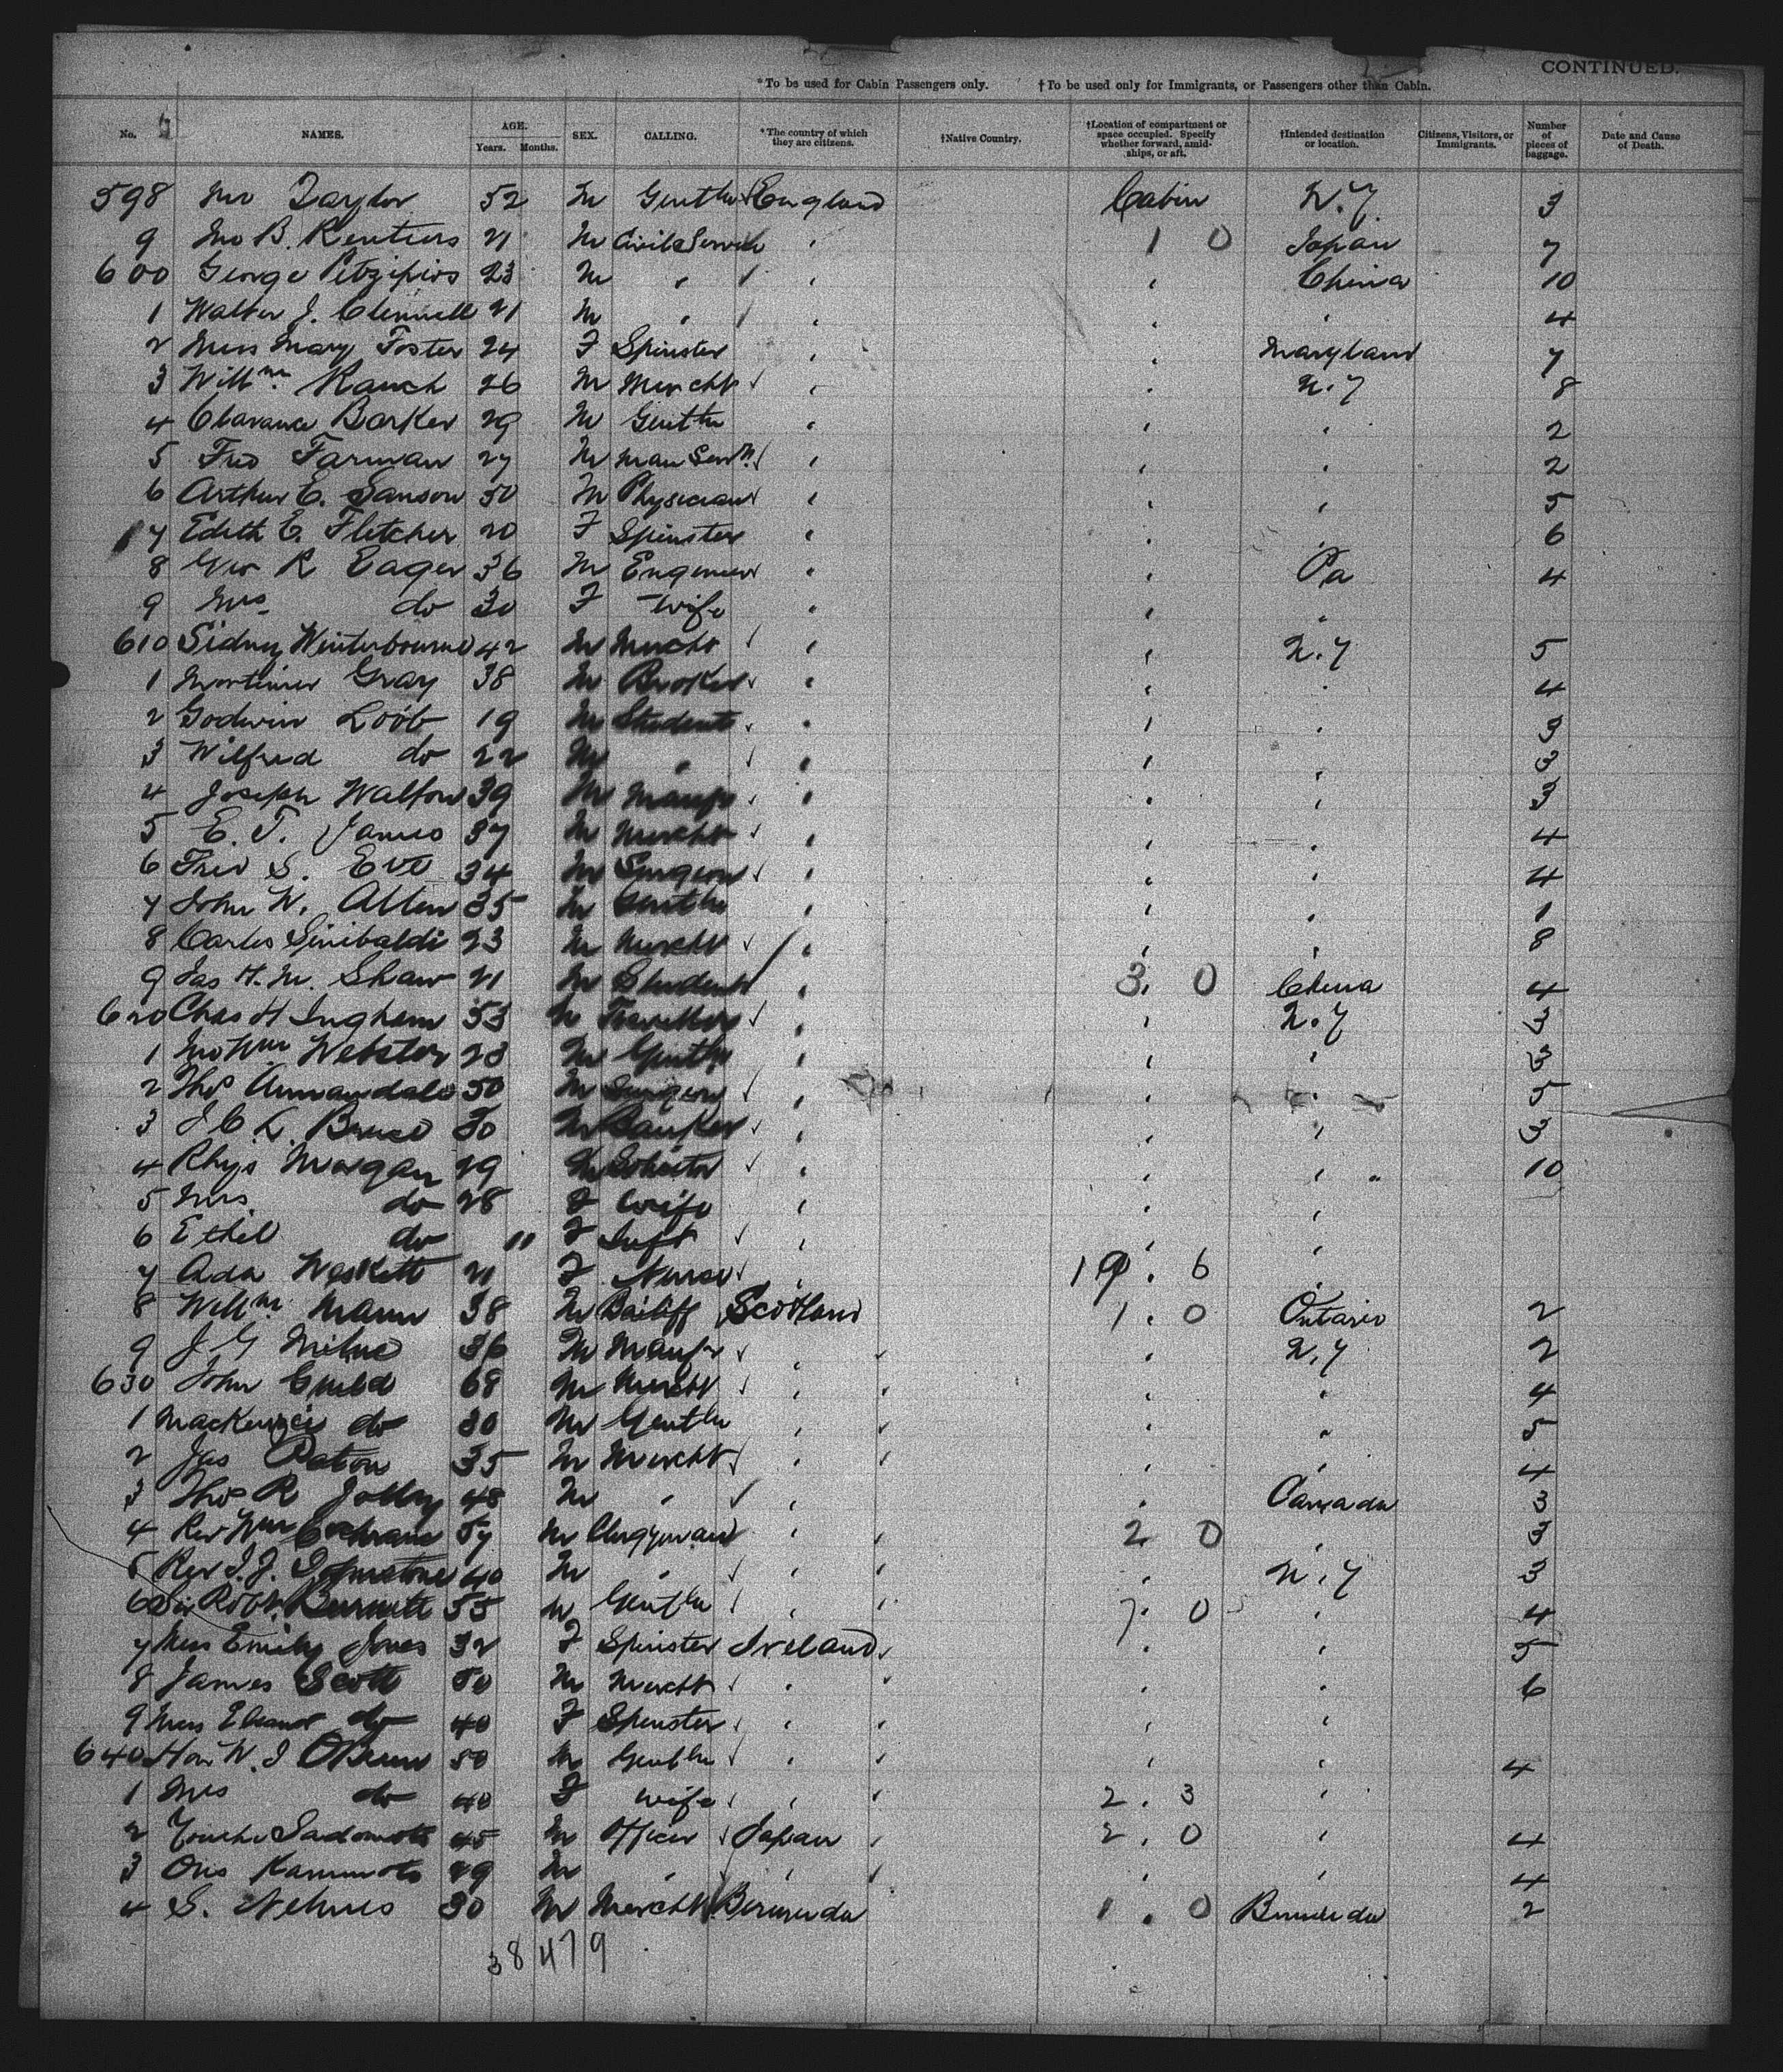 CONTINUED.
*To be used for Cabin Passengers only. †To be used only for Immigrants, or Passengers other than Cabin.
No. NAMES. AGE. Years. Months. SEX. CALLING. *The country of which they are citizens. †Native Country. †Location of compartment or space occupied. Specify whether forward, amidships, or aft. †Intended destination or location. Citizens, Visitors, or Immigrants. Number of pieces of baggage. Date and Cause of Death.
598 Taylor 52 M Gentln England Cabin N.Y. 3
9 Jno B. Rentiers 21 M Civil Service 1 0 Japan 7
600 George Petzipios 23 M " China 10
1 Walter J. Clennell 21 M " 4
2 Miss Mary Foster 24 F Spinster Maryland 7
3 Willm Rauch 26 M Mercht N.Y 8
4 Clarance Barker 29 M Gentln 2
5 Fred Farman 27 M Man Servt 2
6 Arthur E. Sansom 50 M Physician 5
7 Edith E. Fletcher 20 F Spinster 6
8 Geo R Eager 36 M Engineer Pa 4
9 Mrs do 30 F Wife
610 Sidney Winterbourne 42 M Mercht N.Y 5
1 Mortimer Gray 38 M Broker 4
2 Godwin Loob 19 M Student 3
3 Wilfred do 22 M " 3
4 Joseph Walton 39 M Manfr 3
5 E. T. James 37 M Mercht 4
6 Fred S. Eve 34 M Surgeon 4
7 John W. Allen 35 M Gentln 1
8 Carlos Sinibaldi 23 M Mercht 8
9 Jas H. M. Shaw 21 M Student 3. 0 China 4
620 Chas H Ingham 53 M Traveller N.Y 3
1 Jno Wm Webster 23 M Gentln 3
2 Thos Annandale 50 M Surgeon 5
3 J C. L. Bruce 30 M Banker 3
4 Rhys Morgan 29 M Solicitor " 10
5 Mrs do 28 F Wife
6 Ethel do 11 F Inft
7 Ada Weskett 21 F Nurse 19. 6
8 Willm Mann 38 M Bailiff Scotland 1. 0 Ontario 2
9 J G Milne 36 M Manfr N.Y 2
630 John Guild 68 M Mercht 4
1 Mackenzie do 30 M Gentln 5
2 Jas Paton 35 M Mercht 4
3 Thos R Jolly 48 M " Canada 3
4 Rev Wm Cochrane 57 M Clergyman 2 0 3
5 Rev J. J. Johnstone 40 M " N.Y 3
6 Sir Robt Burnett 55 M Gentln 7. 0 4
7 Miss Emily Jones 32 F Spinster Ireland 5
8 James Scott 50 M Mercht 6
9 Miss Eleanor do 40 F Spinster
640 Hon W. J 50 M Gentln 4
1 Mrs do 40 F Wife 2. 3
2 45 M Officer Japan 2. 0 4
3 29 M " 4
4 S. Nelmes 30 M Mercht Bermuda 1. 0 Bermuda 2
38479